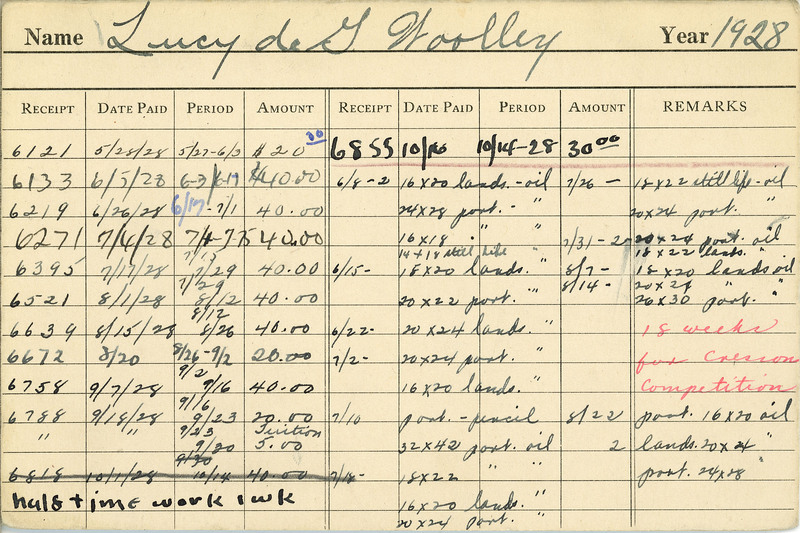 Name Lucy de G Woolley Year 1928
RECEIPT DATE PAID PERIOD AMOUNT RECEIPT DATE PAID PERIOD AMOUNT REMARKS
6121 5/28/28 5/27-6/3 $20.00 6855 10/16 10/14-28 30.00
6133 6/5/28 6-3/6-17 $40.00 6/8-2 16x20 lands.-oil 7/26- 18x22 still life-oil
6219 6/26/28 6/17-7/1 40.00 24x28 port.-" 20x24 port. "
6271 7/4/28 40.00 16x18 " " 7/31-2 20x24 port. oil
7/15 14+18 still life " 18x22 lands. "
6395 7/17/28 7/29 40.00 6/15- 18x20 lands. " 8/7- 18x20 lands oil
7/29 8/14- 20x28 "
6521 8/1/28 8/12 40.00 20x22 port. " 26x30 port. "
8/12
6639 8/15/28 8/26 40.00 6/22- 20x24 lands. " 18 weeks
6672 8/20 8/26-9/2 20.00 7/2- 20x24 port. " for Cresson
9/2
6758 9/7/28 9/16 40.00 16x20 lands. " Competition
9/16
6788 9/18/28 9/23 20.00 7/10 port.-pencil 8/22 port. 16x20 oil
9/23 Tuition
" " 9/30 5.00 32x42 port. oil 2 lands. 20x24 "
9/30
6818 10/1/28 10/14 40.00 7/18- 18x22 " port. 24x28 "
half time work 1 wk 16x20 lands. "
20x24 port. "